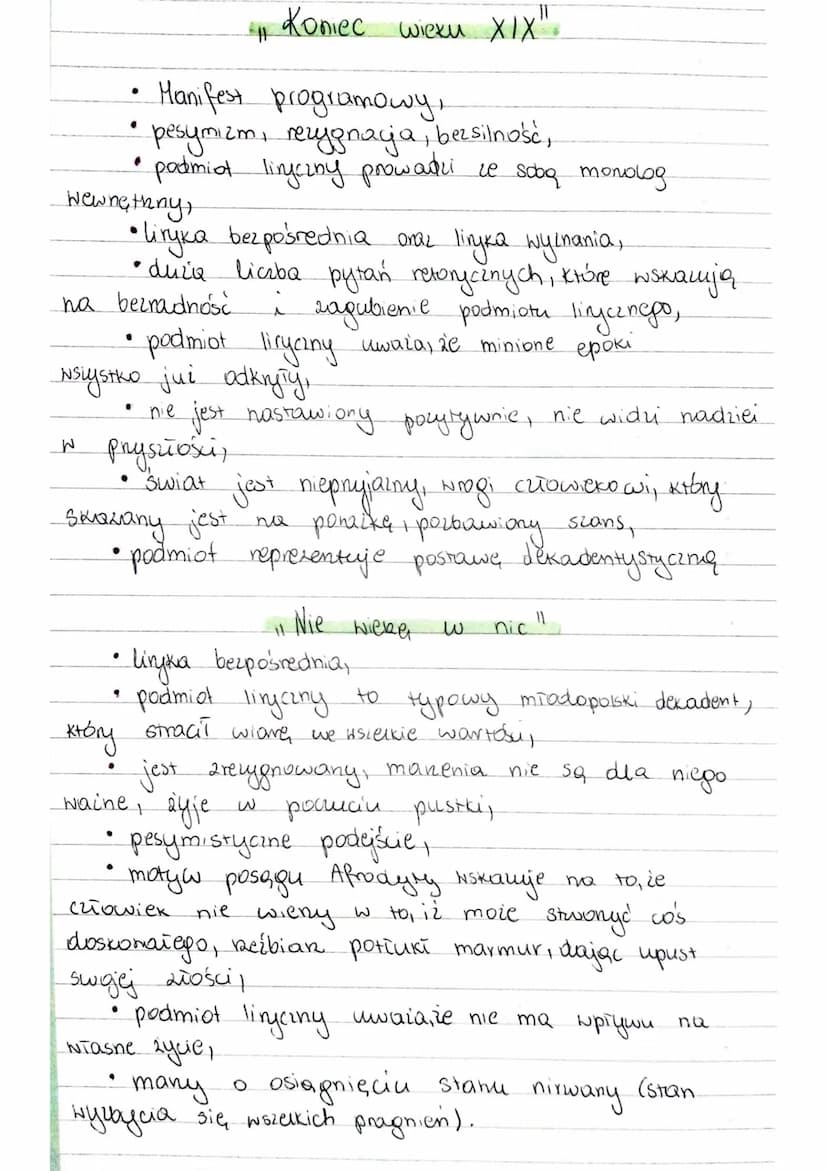 "Koniec wieku XIX"
• Manifest programowy,
• pesymizm, rezygnacja, bezsilność,
• podmiot liryczny prowadzi ze sobą monolog
wewnętrzny,
• liryka bezpośrednia oraz liryka wyznania,
• duża liczba pytań retorycznych, które wskazują
na bezradność i zagubienie podmiotu lirycznego,
• podmiot liryczny uważa, że minione epoki
wszystko już odkryły,
• nie jest nastawiony pozytywnie, nie widzi nadziei
w przyszłości,
• świat jest nieprzyjazny, wrogi człowiekowi, który
skazany jest na porażkę, pozbawiony szans,
• podmiot reprezentuje postawę dekadentystyczną
"Nie wierzę w nic"
• liryka bezpośrednia,
• podmiot liryczny to typowy młodopolski dekadent,
który stracił wiarę we wszelkie wartości,
• jest zrezygnowany, marzenia nie są dla niego
ważne, żyje w poczuciu pustki,
• pesymistyczne podejście,
• motyw posągu Afrodyty wskazuje na to, że
człowiek nie wierzy w to, iż może stworzyć coś
doskonałego, rzeźbiarz potłukł marmur, dając upust
swojej złości,
• podmiot liryczny uważa, że nie ma wpływu na
własne życie,
• marzy o osiągnięciu stanu nirwany (stan
wyzbycia się wszelkich pragnień).